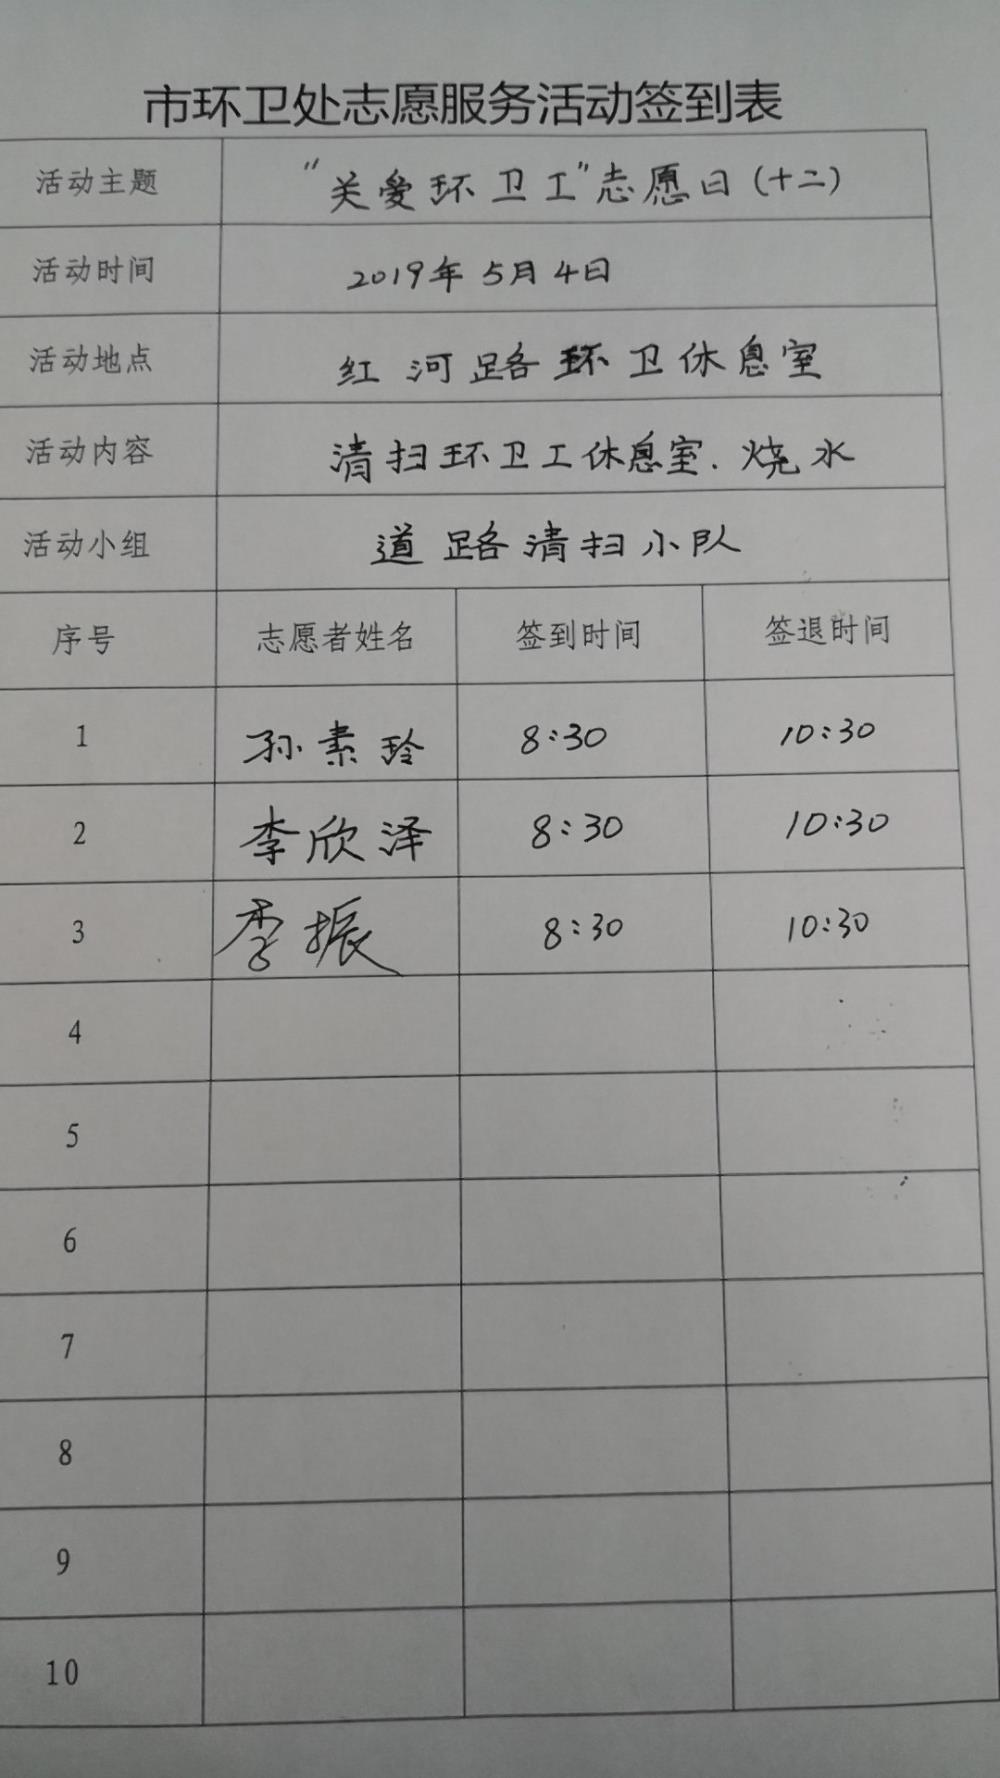 市环卫处志愿服务活动签到表
活动主题 “关爱环卫工”志愿日(十二)
活动时间 2019年5月4日
活动地点 红河路环卫休息室
活动内容 清扫环卫工休息室.烧水
活动小组 道路清扫小队
序号 志愿者姓名 签到时间 签退时间
1 孙素玲 8:30 10:30
2 李欣泽 8:30 10:30
3 李振 8:30 10:30
4
5
6
7
8
9
10